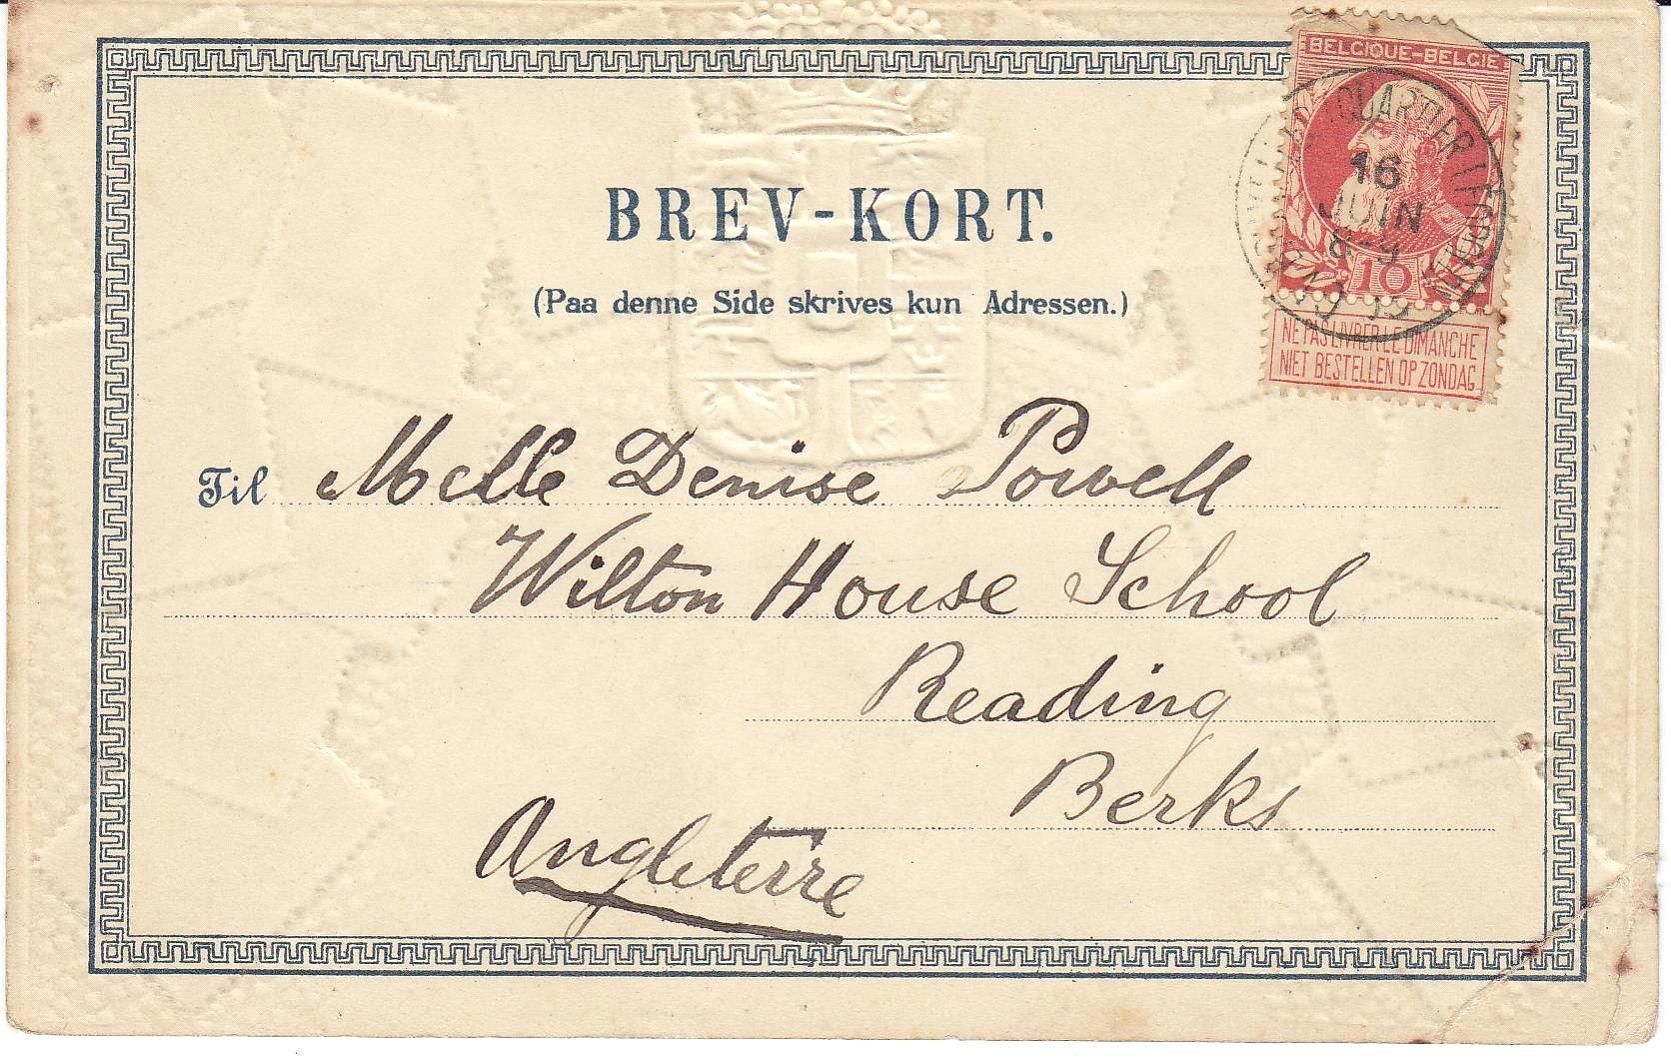 BELGIQUE-BELGIE
QUARTIER LEOPOLD
16
JUIN
8-9
10
NE PAS LIVRER LE DIMANCHE
NIET BESTELLEN OP ZONDAG
BREV-KORT.
(Paa denne Side skrives kun Adressen.)
Til Melle Denise Powell
Wilton House School
Reading
Berks
Angleterre